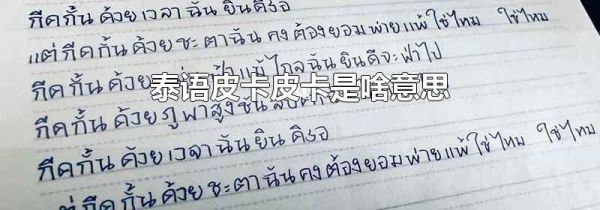 กีดกั้น ด้วย เวลา ฉัน ยินดีรอ
แต่กีดกั้น ด้วย ชะ ตาฉัน คง ต้องยอม พ่ายแพ้ ใช่ไหม ใช่ไหม
กีดกั้น ด้วย แม้ไกล ฉัน ยินดีจะฝ่าไป
泰语皮卡皮卡是啥意思
กีดกั้น ด้วย ภูผาสูงชัน
กีดกั้น ด้วย เวลาฉัน ยินดีรอ
กีดกั้น ด้วย ชะตาฉัน คง ต้องยอม พ่ายแพ้ ใช่ไหม ใช่ไหม